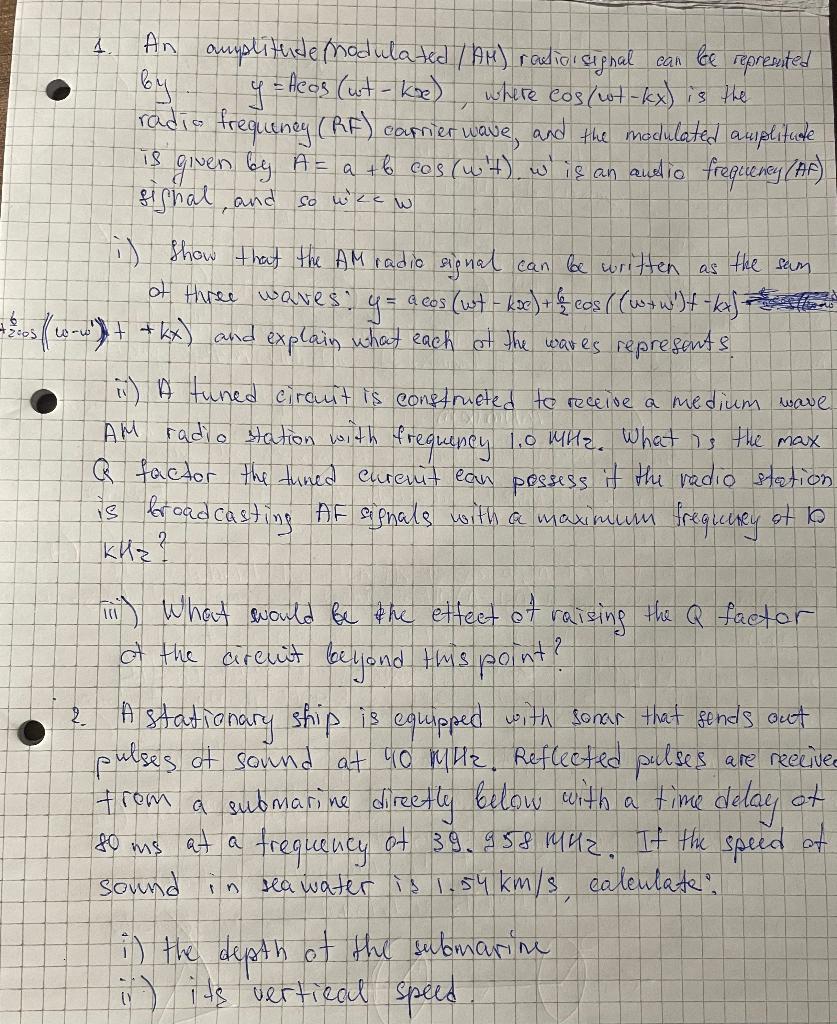 1. An amplitude modulated (AM) radio signal can be represented
by y = Acos (wt - kx), where cos(wt-kx) is the
radio frequency (RF) carrier wave, and the modulated amplitude
is given by A = a + b cos (w't). w' is an audio frequency (AF)
signal, and so w' << w
i) Show that the AM radio signal can be written as the sum
of three waves: y = a cos (wt - kx) + b/2 cos ((w+w')t - kx)
+ b/2 cos ((w-w')t + kx) and explain what each of the waves represents.
ii) A tuned circuit is constructed to receive a medium wave
AM radio station with frequency 1.0 MHz. What is the max
Q factor the tuned curcuit can possess if the radio station
is broadcasting AF signals with a maximum frequency of 10
kHz?
iii) What would be the effect of raising the Q factor
of the circuit beyond this point?
2. A stationary ship is equipped with sonar that sends out
pulses of sound at 40 MHz. Reflected pulses are receive
from a submarine directly below with a time delay of
80 ms at a frequency of 39.958 MHz. If the speed of
sound in sea water is 1.54 km/s, calculate:
i) the depth of the submarine
ii) its vertical speed.